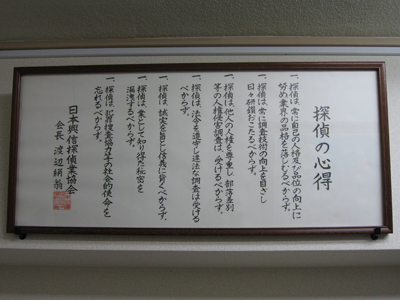 探偵の心得
一、探偵は、常に自己の人格及び品位の向上に
努め業界の品格を落しむるべからず。
一、探偵は、常に調査技術の向上を目ざし
日々研鑚おこたるべからず。
一、探偵は、他人の人権を尊重し、部落差別
等の人権侵害調査は、受けるべからず。
一、探偵は、法令を遵守し違法な調査は受ける
べからず。
一、探偵は、誠実を旨とし信義に背くべからず。
一、探偵は、業として知り得た秘密を
漏洩するべからず。
一、探偵は、犯罪捜査協力等の社会的使命を
忘れるべからず。
日本興信探偵業協会
会長 渡辺絹翁